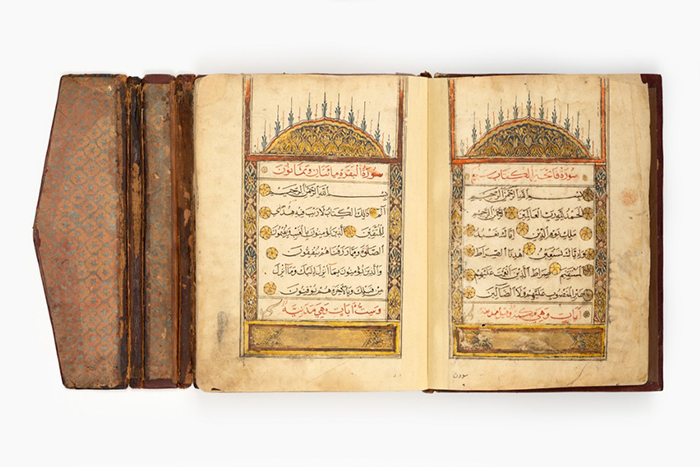 سورة فاتحة الكتاب سبع
بسم الله الرحمن الرحيم
الحمد لله رب العالمين الرحمن الرحيم
ملك يوم الدين إياك نعبد
وإياك نستعين اهدنا الصراط
المستقيم صراط الذين أنعمت عليهم
غير المغضوب عليهم ولا الضالين
آيات وهي
سورة البقرة مائتان وثمانون
بسم الله الرحمن الرحيم
الم ذلك الكتاب لا ريب فيه هدى
للمتقين الذين يؤمنون بالغيب ويقيمون
الصلوة ومما رزقناهم ينفقون
والذين يؤمنون بما أنزل إليك وما أنزل
من قبلك وبالآخرة هم يوقنون
وست آيات وهي مدنية